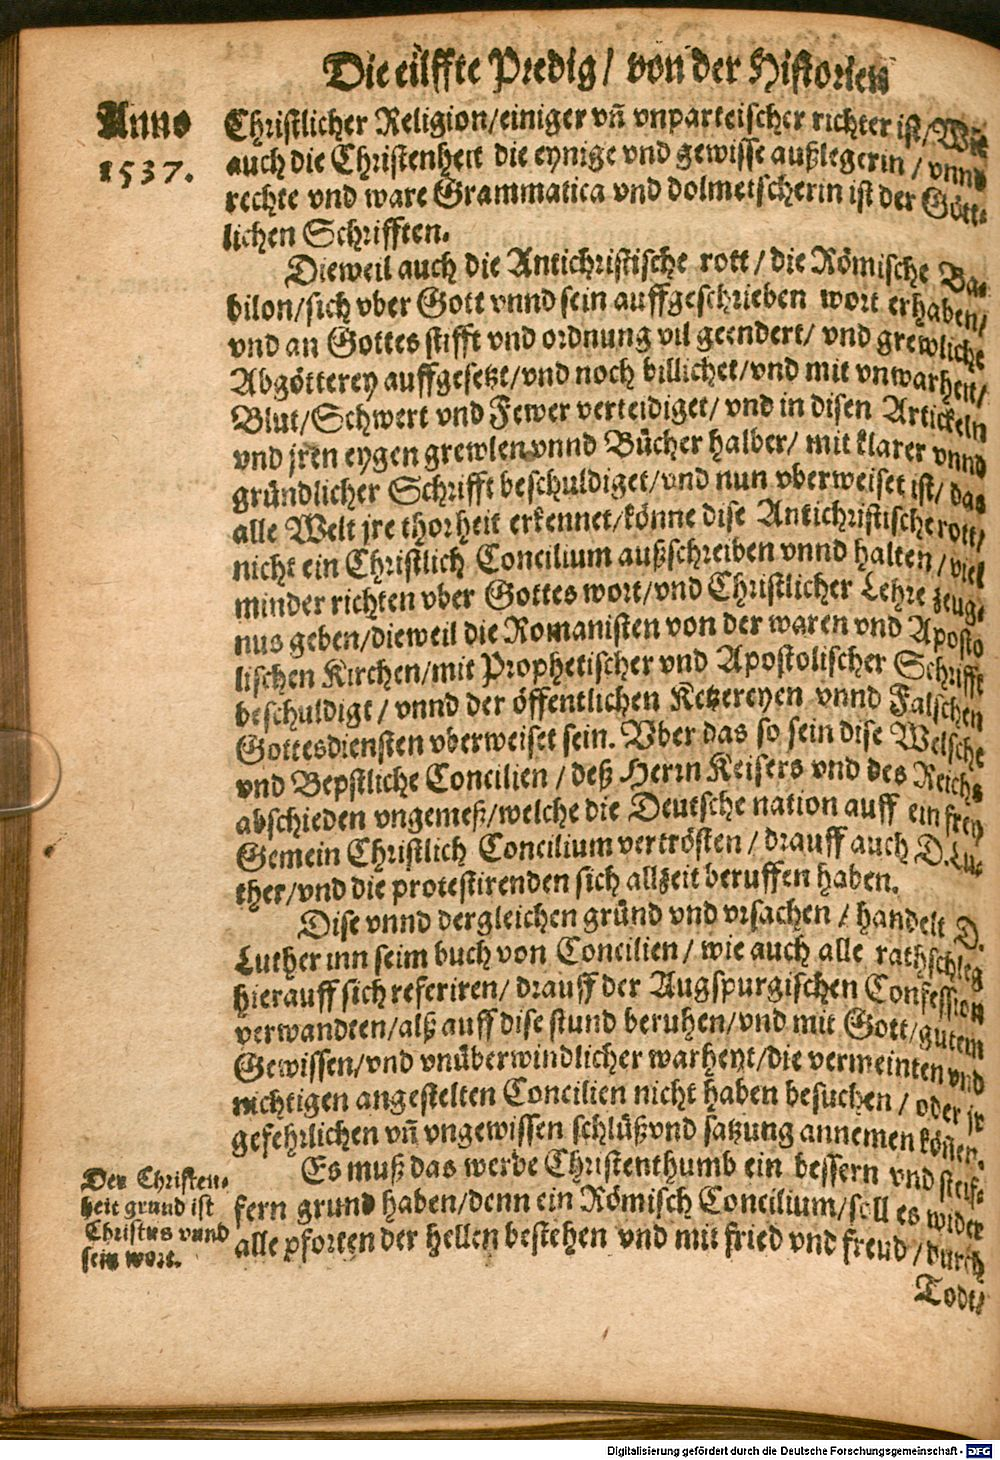 Die eilffte Predig/ von der Historien
Anno
1537.
Christlicher Religion/einiger vñ vnparteischer richter ist/Wie
auch die Christenheit die eynige vnd gewisse außlegerin / vnnd
rechte vnd ware Grammatica vnd dolmetscherin ist der Gött-
lichen Schrifften.
Dieweil auch die Antichristische rott / die Römische Ba-
bilon/sich vber Gott vnnd sein auffgeschrieben wort erhaben/
vnd an Gottes stifft vnd ordnung vil geendert/ vnd grewliche
Abgötterey auffgesetzt/vnd noch billichet/vnd mit vnwarheit/
Blut/Schwert vnd Fewer verteidiget/ vnd in disen Artickeln
vnd jren eygen grewlen vnnd Bücher halber/ mit klarer vnnd
gründlicher Schrifft beschuldiget/vnd nun vberweiset ist/ das
alle Welt jre thorheit erkennet/könne dise Antichristische rott/
nicht ein Christlich Concilium außschreiben vnnd halten / viel
minder richten vber Gottes wort/vnd Christlicher Lehre zeug-
nus geben/dieweil die Romanisten von der waren vnd Aposto
lischen Kirchen/mit Prophetischer vnd Apostolischer Schrifft
beschuldigt / vnnd der öffentlichen Ketzereyen vnnd Falschen
Gottesdiensten vberweiset sein. Vber das so sein dise Welsche
vnd Bepstliche Concilien / deß Herrn Keisers vnd des Reichs
abschieden vngemeß/welche die Deutsche nation auff ein frey
Gemein Christlich Concilium vertrösten / drauff auch D.Lu-
ther/vnd die protestirenden sich allzeit beruffen haben.
Dise vnnd dergleichen gründ vnd vrsachen / handelt D.
Luther inn seim buch von Concilien / wie auch alle rathschleg
hierauff sich referiren/ drauff der Augspurgischen Confession
verwandten/alß auff dise stund beruhen/vnd mit Gott/gutem
Gewissen/vnd vnüberwindlicher warheyt/die vermeinten vnd
nichtigen angestelten Concilien nicht haben besuchen / oder jr
gefehrlichen vñ vngewissen schlüß vnd satzung annemen köñen.
Es muß das werde Christenthumb ein bessern vnd steif-
fern grund haben/denn ein Römisch Concilium/soll es wider
alle pforten der hellen bestehen vnd mit fried vnd freud / durch
Todt/
Der Christen-
heit grund ist
Christus vnnd
sein wort.
Digitalisierung gefördert durch die Deutsche Forschungsgemeinschaft - DFG